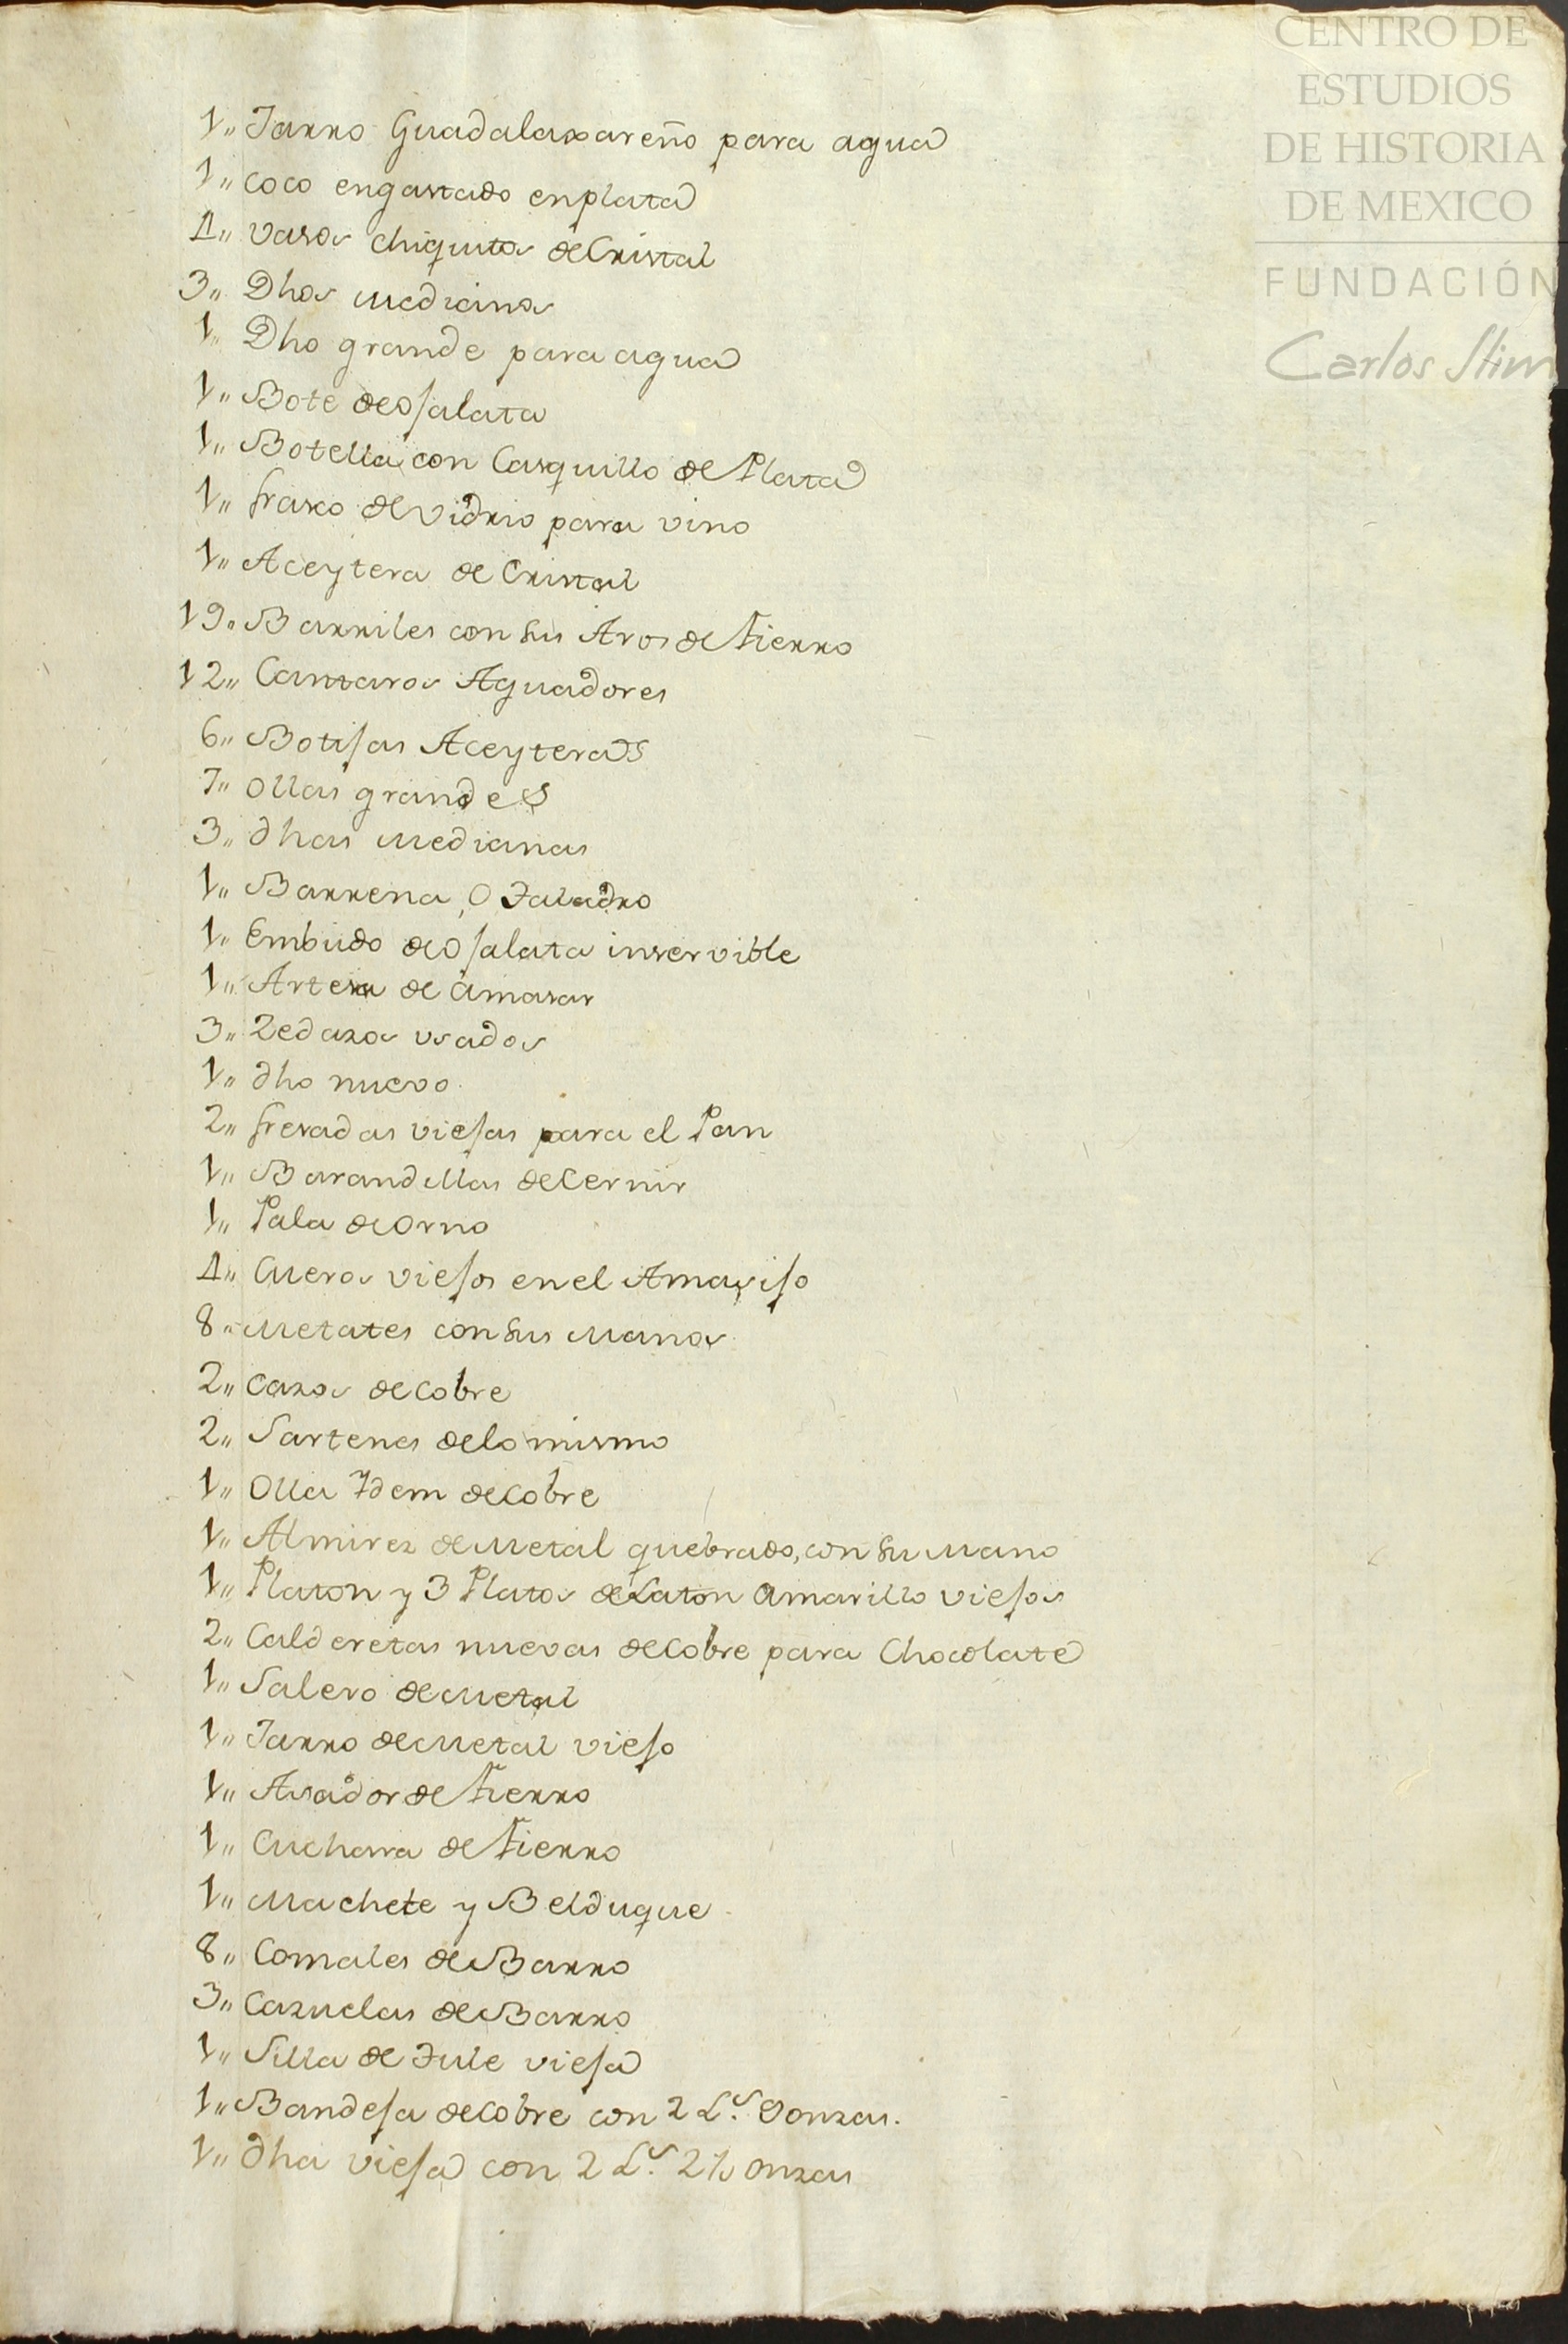 CENTRO DE
ESTUDIOS
DE HISTORIA
DE MEXICO
FUNDACIÓN
Carlos Slim
1,, Jarro Guadalaxareño para agua
1,, coco engastado enplata
4,, vasos chiquitos de Cristal
3,, Dhos medianos
1,, Dho grande para agua
1,, Bote deojalata
1,, Botella con Casquillo de Plata
1,, frasco de vidrio para vino
1,, Aceytera de Cristal
19,, Barriles con sus Aros de fierro
12,, Cantaros Aguadores
6,, Botijas Aceyteras
7,, Ollas grandes
3,, dhas medianas
1,, Barrena, O Taladro
1,, Embudo deojalata inservible
1,, Artesa de amasar
3,, Zedazos usados
1,, dho nuevo
2,, fresadas viejas para el Pan
1,, Barandillas de Cernir
1,, Pala de orno
4,, Cueros viejos en el Amasijo
8,, Metates con sus manos
2,, Cazos de cobre
2,, Sartenes delo mismo
1,, Olla Ydem de cobre
1,, Almirez de metal quebrado, con su mano
1,, Platon y 3 Platos de Laton amarillo viejos
2,, Calderetas nuevas de Cobre para Chocolate
1,, Salero de metal
1,, Jarro de metal viejo
1,, Asador de fierro
1,, Cuchara de fierro
1,, Machete y Belduque
8,, Comales de Barro
3,, Cazuelas de Barro
1,, Silla de Tule vieja
1,, Bandeja de cobre con 2 Ls. onzas.
1,, dha vieja con 2 Ls. 2½ onzas